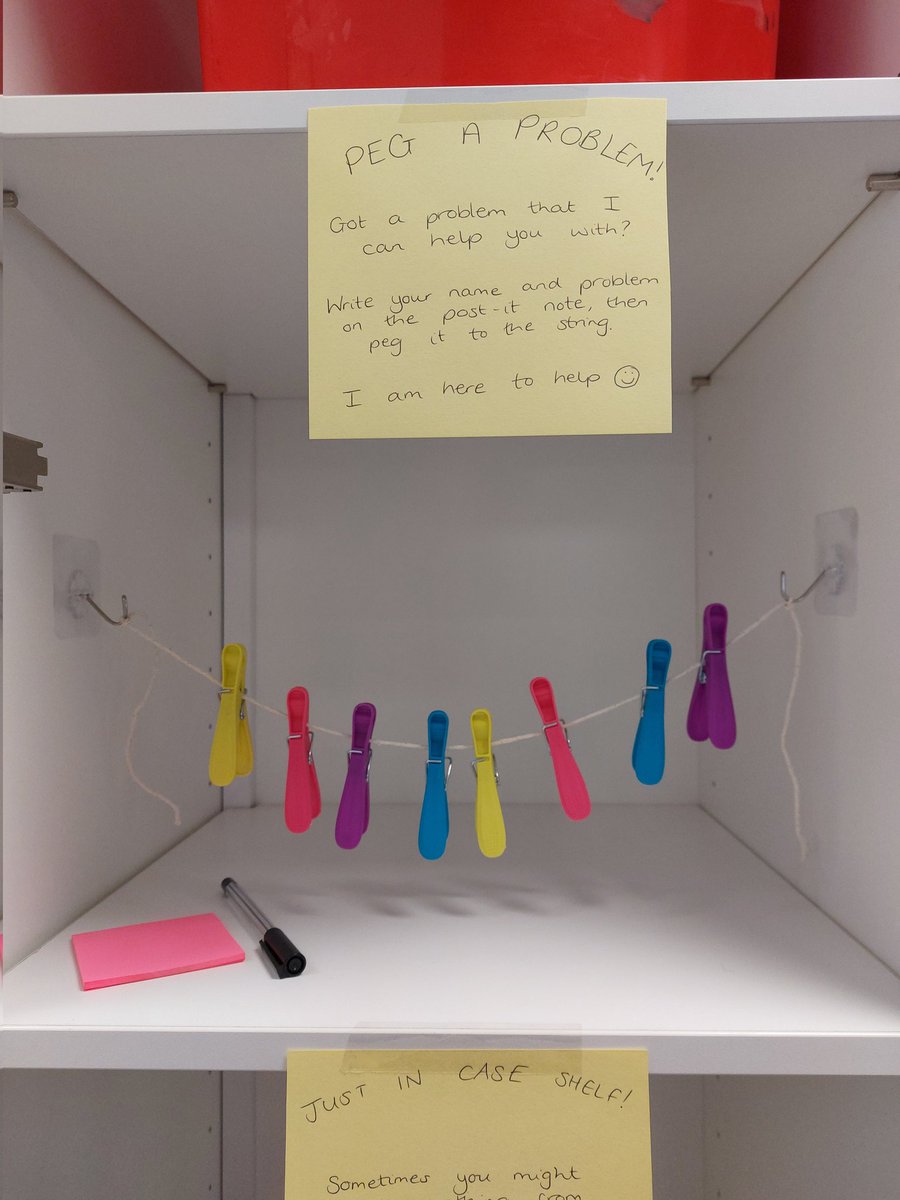 PEG A PROBLEM!
Got a problem that I
can help you with?
Write your name and problem
on the post-it note, then
peg it to the string.
I am here to help
JUST IN CASE SHELF!
Sometimes you might
from